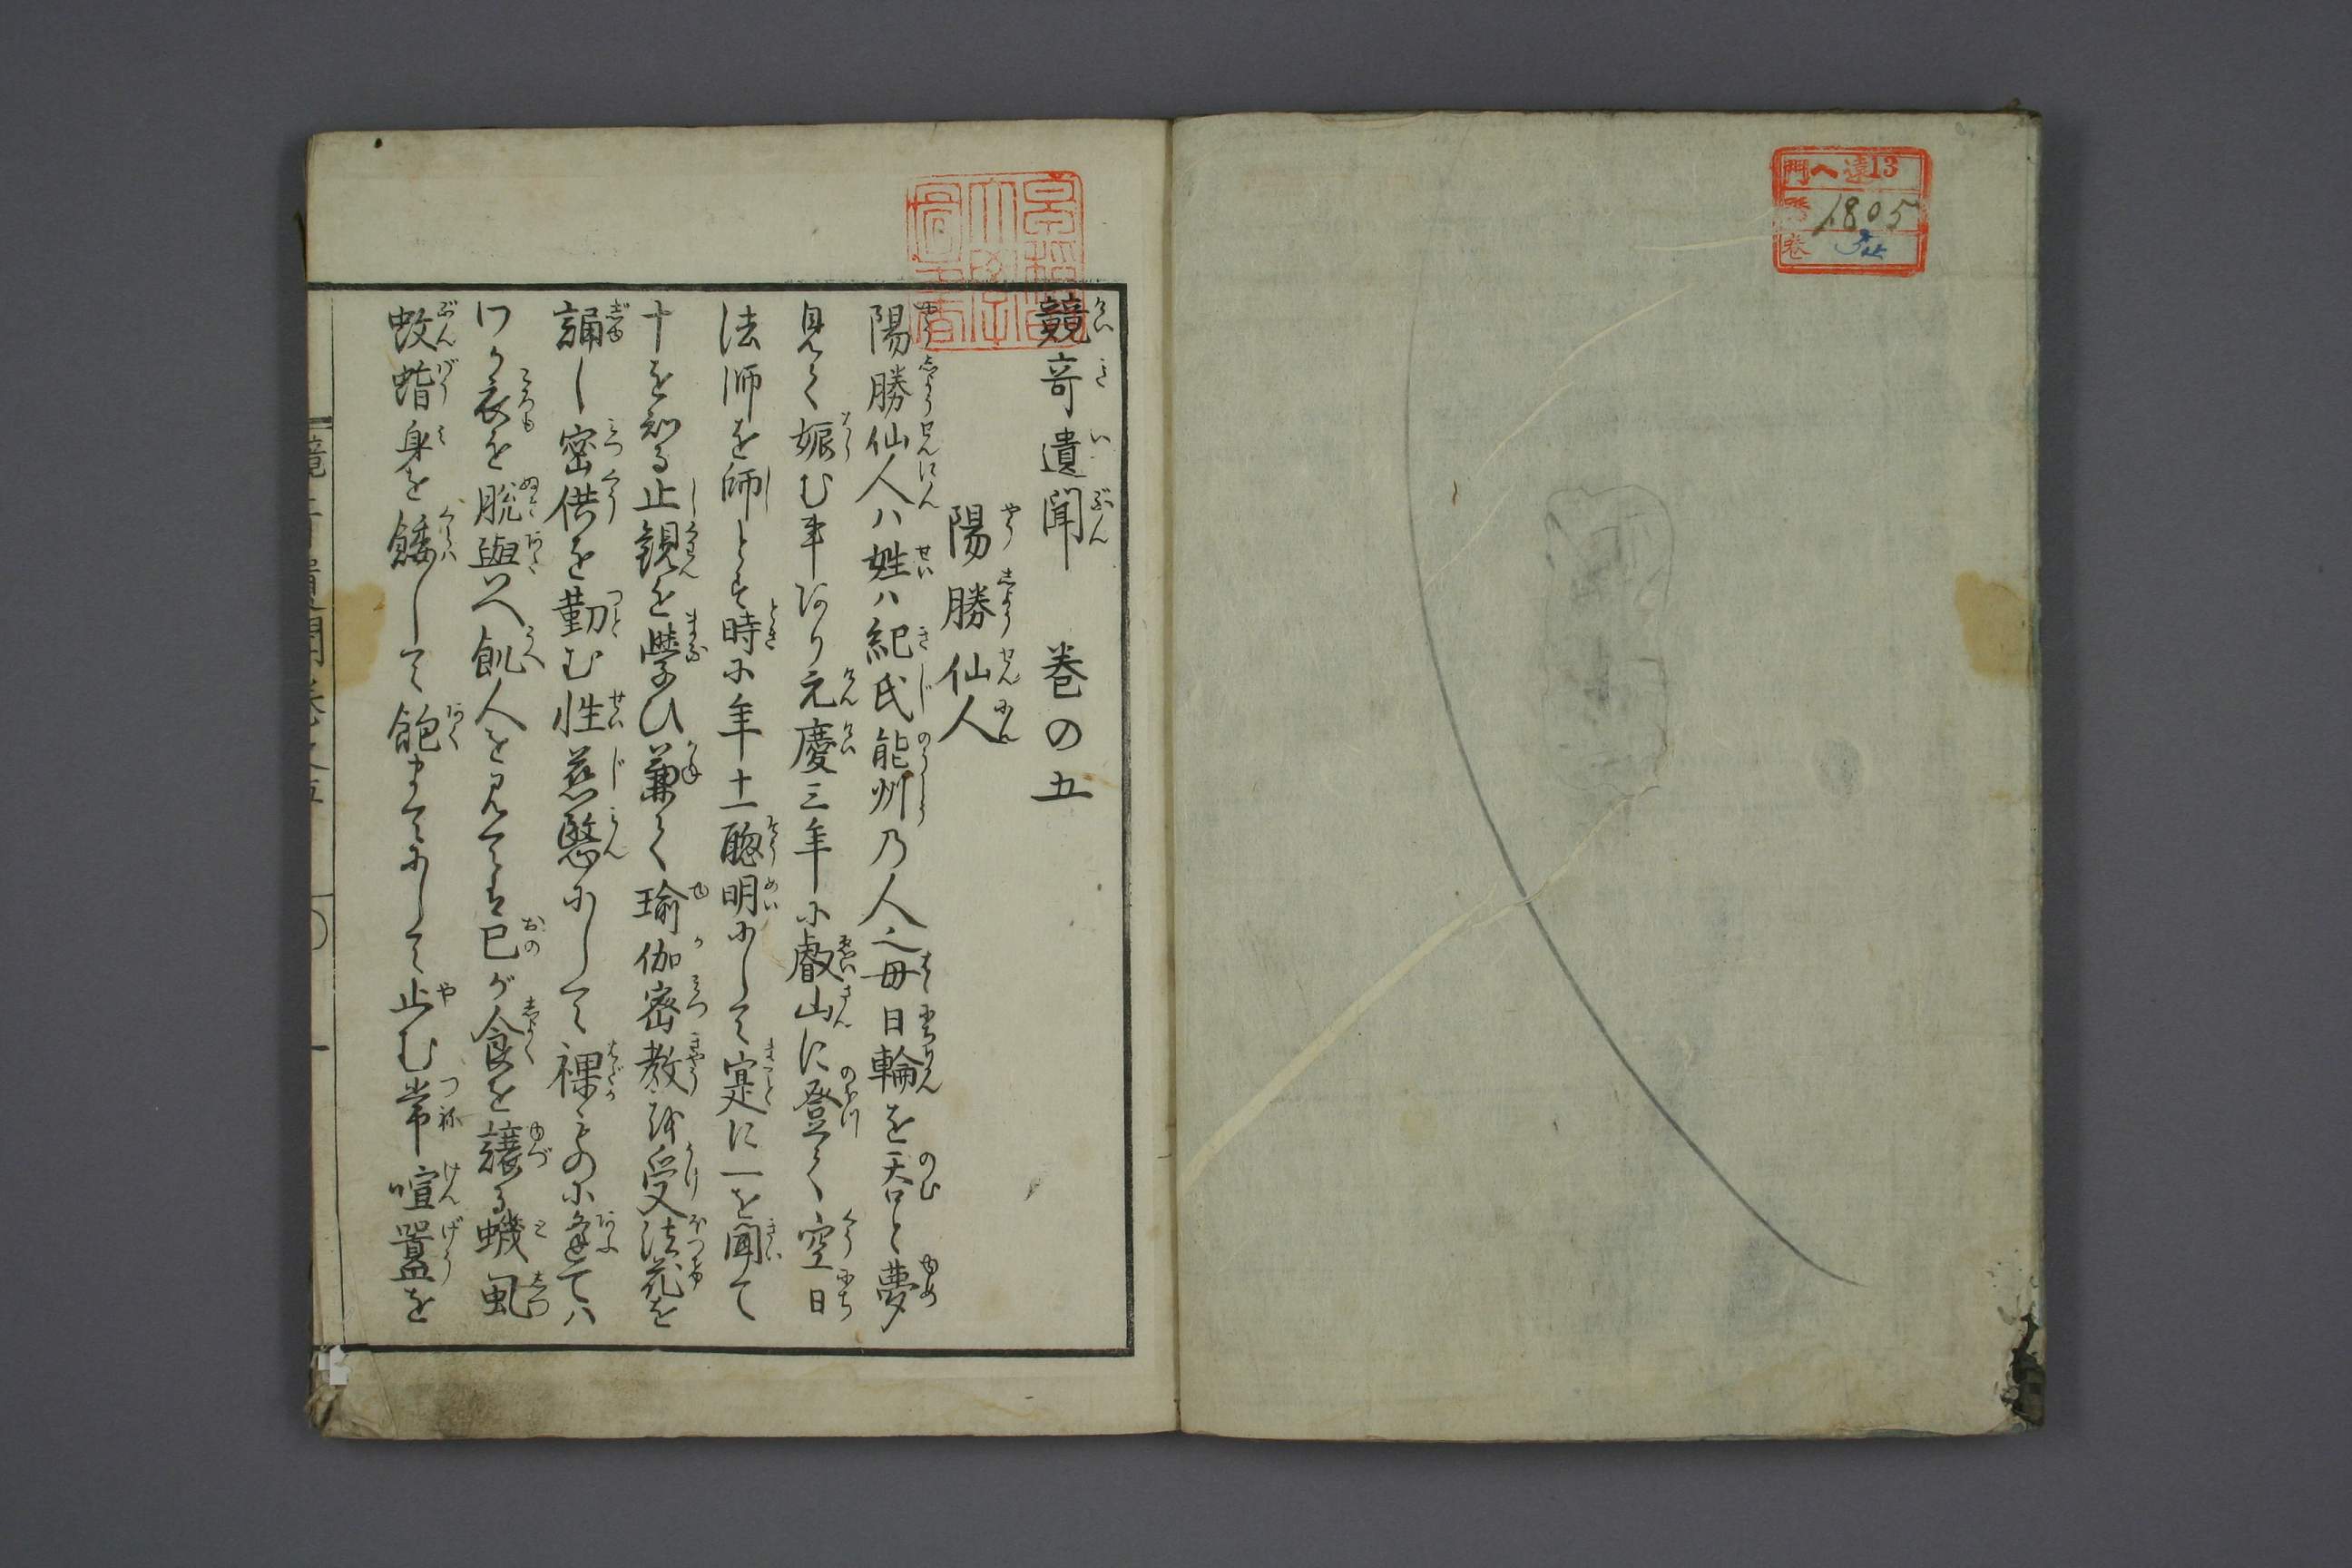 門へ遠13
號1805
卷
早稲田大學圖書
競竒遺聞　巻の五
陽勝仙人
陽勝仙人ハ姓ハ紀氏能州乃人也母日輪を呑と夢
見て娠む事あり元慶三年に叡山に登て空日
法師を師とす時に年十一聡明にして寔に一を聞て
十を知る止観を學ひ兼て瑜伽密教を受法花を
誦し密供を勤む性慈愍にして裸ものに逢てハ
わか衣を脱與へ飢人を見てハ己が食を譲る蟣虱
蚊蝱身を餧しして飽までにして止む常喧囂を